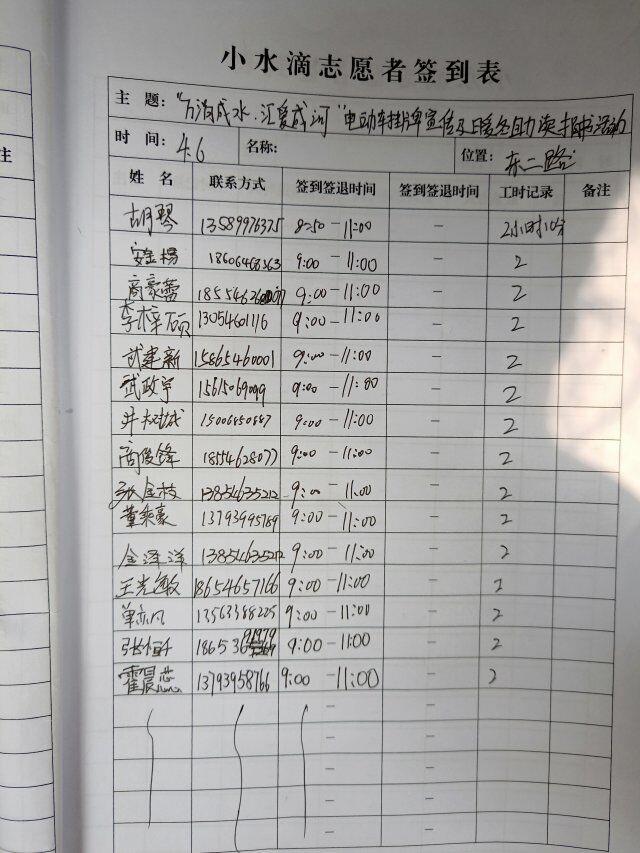 小水滴志愿者签到表
主 题: "万滴成水.汇爱成河"电动车挂牌宣传及 自助 活动
时 间: 4.6 名称: 位置: 东二路
姓 名 联系方式 签到签退时间 签到签退时间 工时记录 备注
胡琴 13589976375 8:50-11:00 - 2小时10分
9:00-11:00 - 2
商豪蕾 9:00-11:00 - 2
李梓硕 13054601116 9:00-11:00 - 2
武建新 15865460001 9:00-11:00 - 2
武政宇 15615069099 9:00-11:00 - 2
15006850887 9:00-11:00 - 2
商俊锋 18554628077 9:00-11:00 - 2
张金枝 13854635212 9:00-11:00 - 2
董乘豪 13793995789 9:00-11:00 - 2
金泽洋 13854635212 9:00-11:00 - 2
王光敏 18654657166 9:00-11:00 - 2
单亦凡 13563388225 9:00-11:00 - 2
张恒千 9:00-11:00 - 2
霍晨芯 13793958766 9:00-11:00 - 2
- -
- -
- -
- -
- -
注